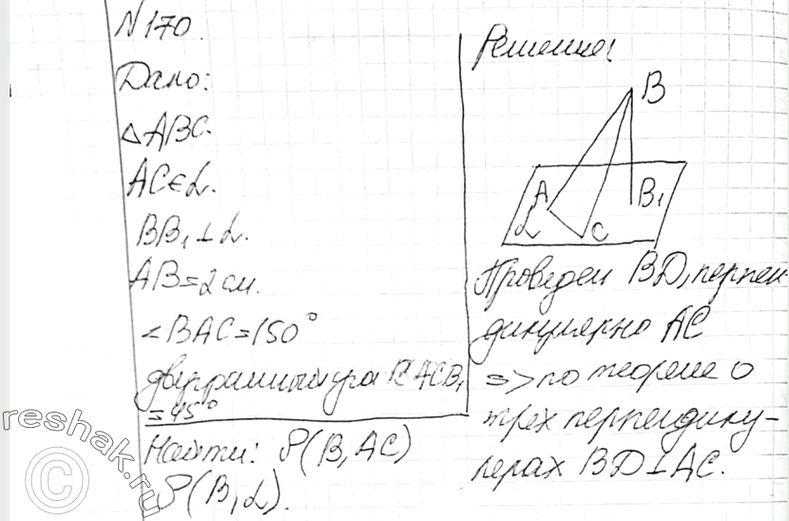 N170.
Дано:
△ABC.
AC∈α.
BB₁⊥α.
AB=2см.
∠BAC=150°
двугранный угол BACB₁
=45°
Найти: ρ(B,AC)
ρ(B,α).
Решение:
B
A
B₁
α
C
Проведем BD, перпен-
дикулярно AC
=> по теореме о
трех перпендику-
лерах BD⊥AC.
reshak.ru
©